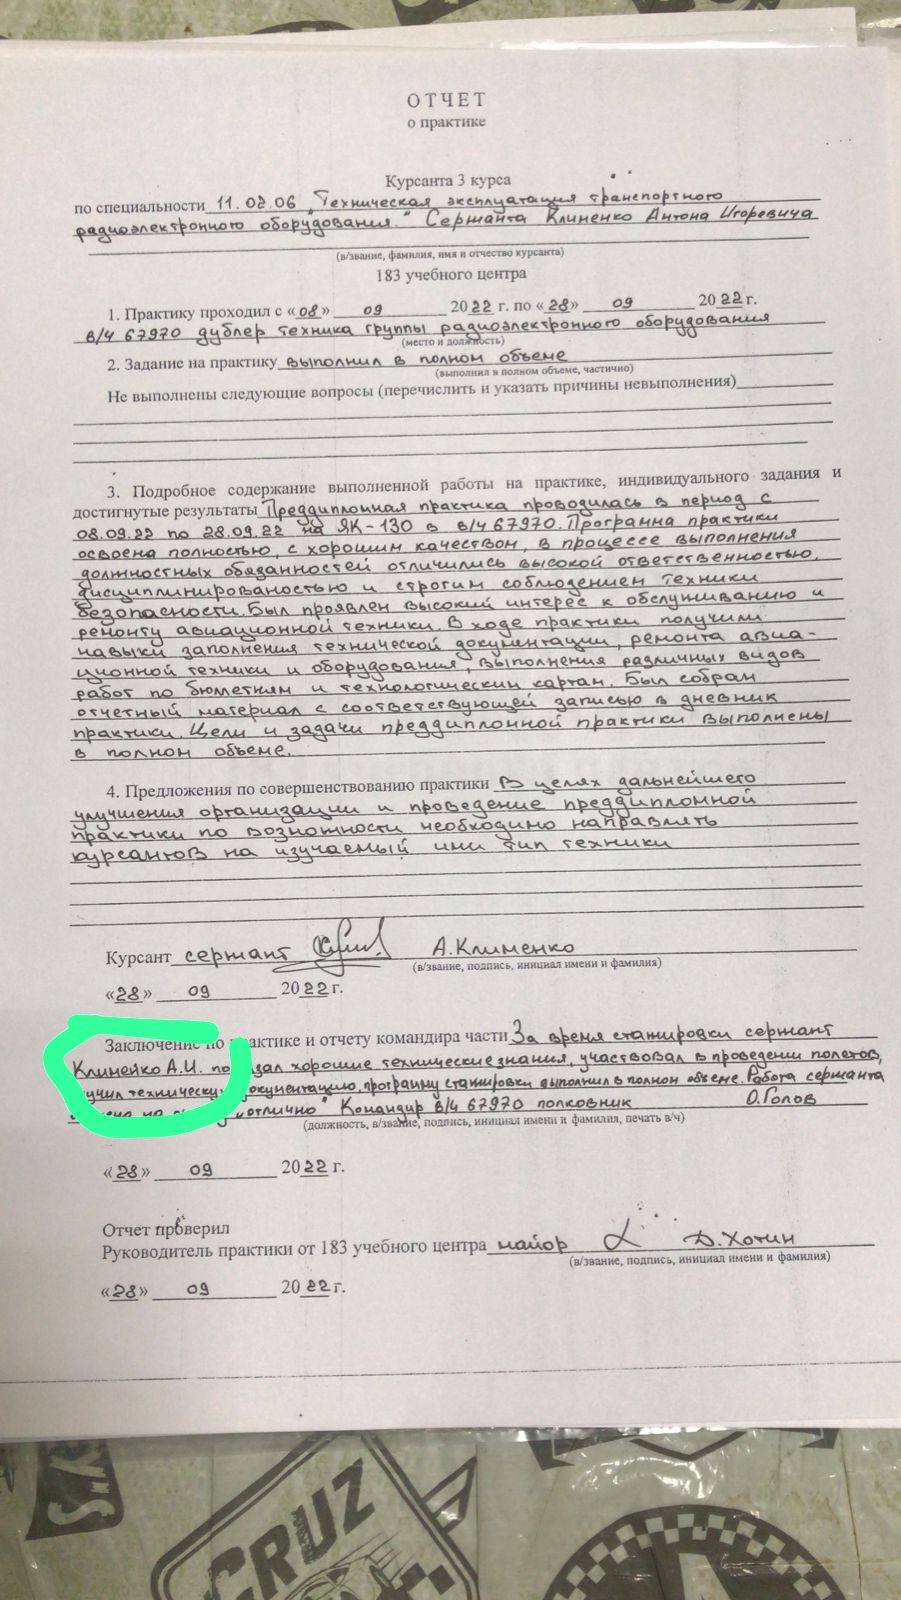 ОТЧЕТ
о практике
Курсанта 3 курса
по специальности 11.02.06 "Техническая эксплуатация транспортного
радиоэлектронного оборудования." Сержанта Клименко Антона Игоревича
(в/звание, фамилия, имя и отчество курсанта)
183 учебного центра
1. Практику проходил с «08» 09 2022 г. по «28» 09 2022 г.
в/ч 67970 дублер техника группы радиоэлектронного оборудования
(место и должность)
2. Задание на практику выполнил в полном объеме
(выполнил в полном объеме, частично)
Не выполнены следующие вопросы (перечислить и указать причины невыполнения)
3. Подробное содержание выполненной работы на практике, индивидуального задания и
достигнутые результаты Преддипломная практика проводилась в период с
08.09.22 по 28.09.22 на ЯК-130 в в/ч 67970. Программа практики
освоена полностью, с хорошим качеством, в процессе выполнения
должностных обязанностей отличились высокой ответственностью,
дисциплинированостью и строгим соблюдением техники
безопасности. Был проявлен высокий интерес к обслуживанию и
ремонту авиационной техники. В ходе практики получили
навыки заполнения технической документации, ремонта авиа-
ционной техники и оборудования, выполнения различных видов
работ по бюллетням и технологическим картам. Был собран
отчетный материал с соответствующей записью в дневник
практики. Цели и задачи преддипломной практики выполнены
в полном объеме.
4. Предложения по совершенствованию практики В целях дальнейшего
улучшения организации и проведение преддипломной
практики по возможности необходимо направлять
курсантов на изучаемый ими тип техники
Курсант сержант А.Клименко
(в/звание, подпись, инициал имени и фамилия)
«28» 09 2022 г.
Заключение по практике и отчету командира части За время стажировки сержант
Клименко А.И. показал хорошие технические знания, участвовал в проведении полетов,
документацию, программу стажировки выполнил в полном объеме. Работа сержанта
на отлично" Командир в/ч 67970 полковник О.Голов
(должность, в/звание, подпись, инициал имени и фамилия, печать в/ч)
«28» 09 2022 г.
Отчет проверил
Руководитель практики от 183 учебного центра майор Д.Хотин
(в/звание, подпись, инициал имени и фамилия)
«28» 09 2022 г.
CRUZ